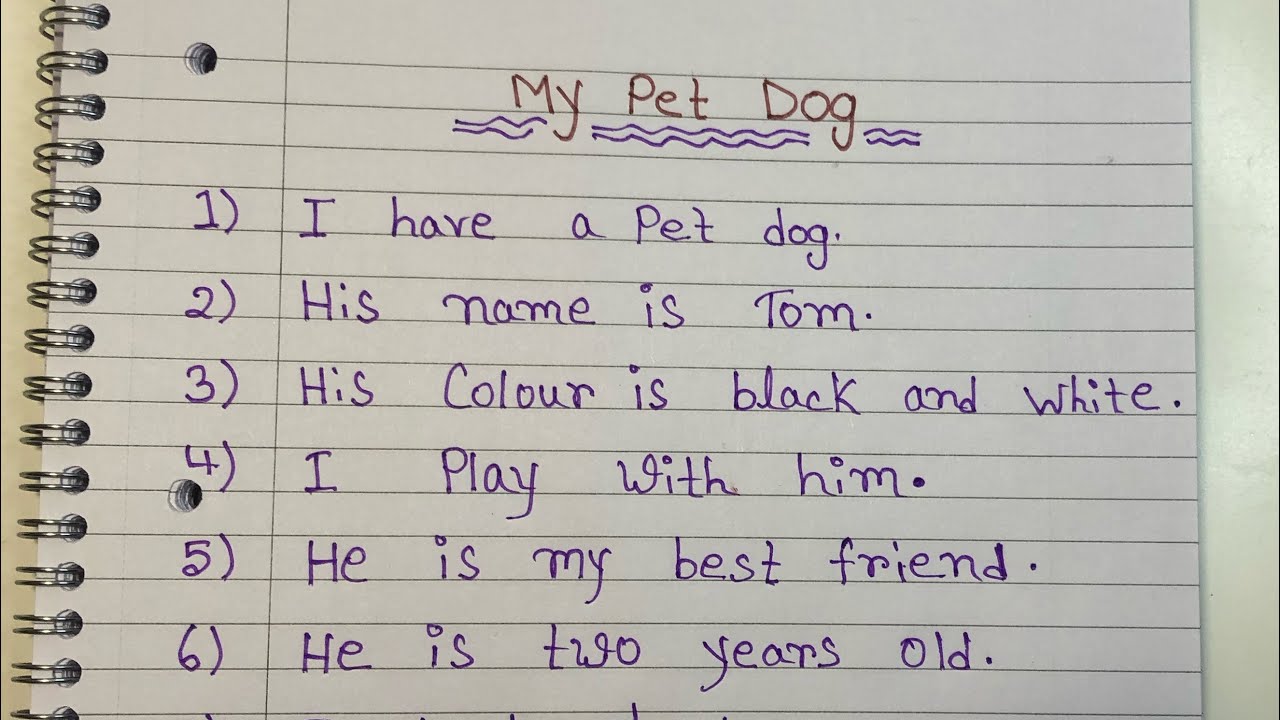 My Pet Dog
1) I have a Pet dog.
2) His name is Tom.
3) His Colour is black and white.
4) I Play with him.
5) He is my best friend.
6) He is two years old.